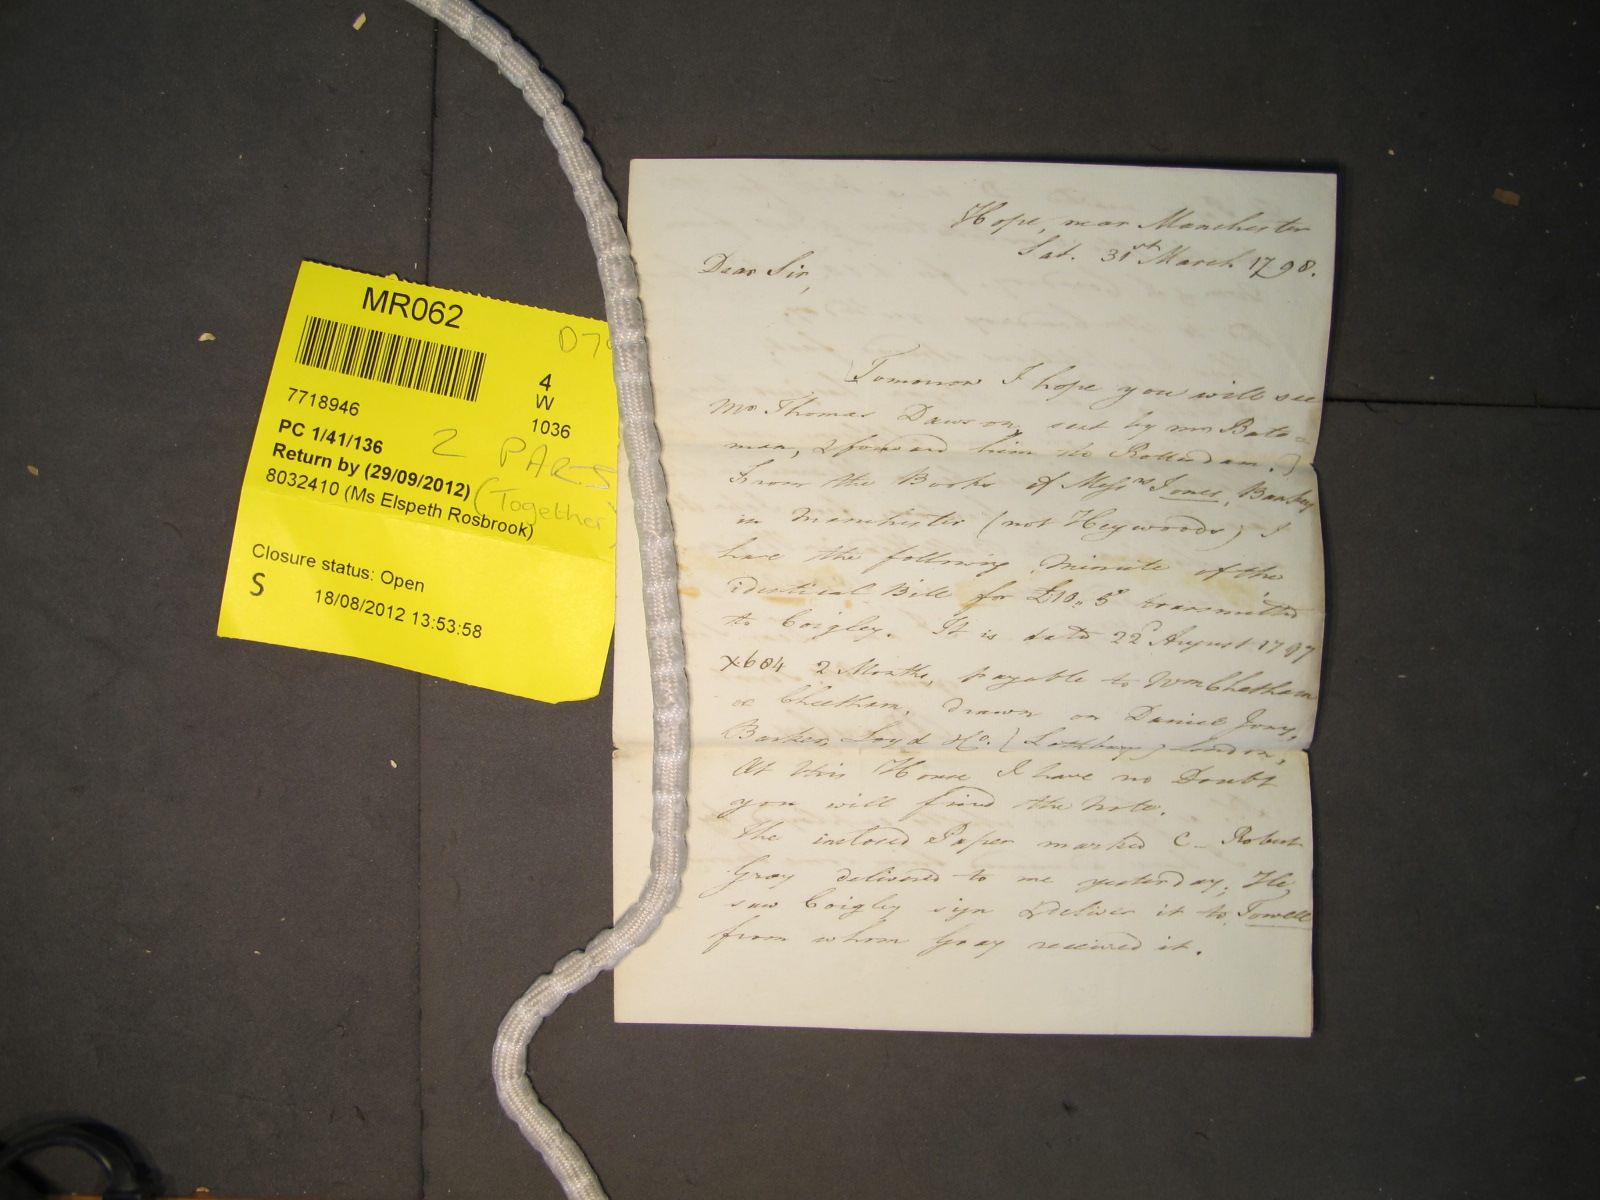 MR062
D7
4
W
1036
7718946
PC 1/41/136
2 PARTS
Return by (29/09/2012)
(Together)
8032410 (Ms Elspeth Rosbrook)
Closure status: Open
S
18/08/2012 13:53:58
Hope, near Manchester
Sat. 31st March 1798.
Dear Sir,
(Tomorrow I hope you will see
Mr Thomas Dawson, sent by Mr Bate=
man, & forward him to Rotterdam.)
From the Books of Messrs Jones, Bankers
in Manchester (not Heywoods) I
have the following Minute of the
identical Bill for £10,, 5s transmitted
to Coigley. It is dated 22d August 1797
X604 2 Months, payable to Wm Chetham
or Cheetham, drawn on Daniel Jones,
Barker, Loyd & Co. (Lothbury) London,
At this House I have no Doubt
you will find the Note.
The inclosed Paper marked C - Robert
Gray delivered to me yesterday; He
saw Coigley sign & deliver it to Towell
from whom Gray received it.